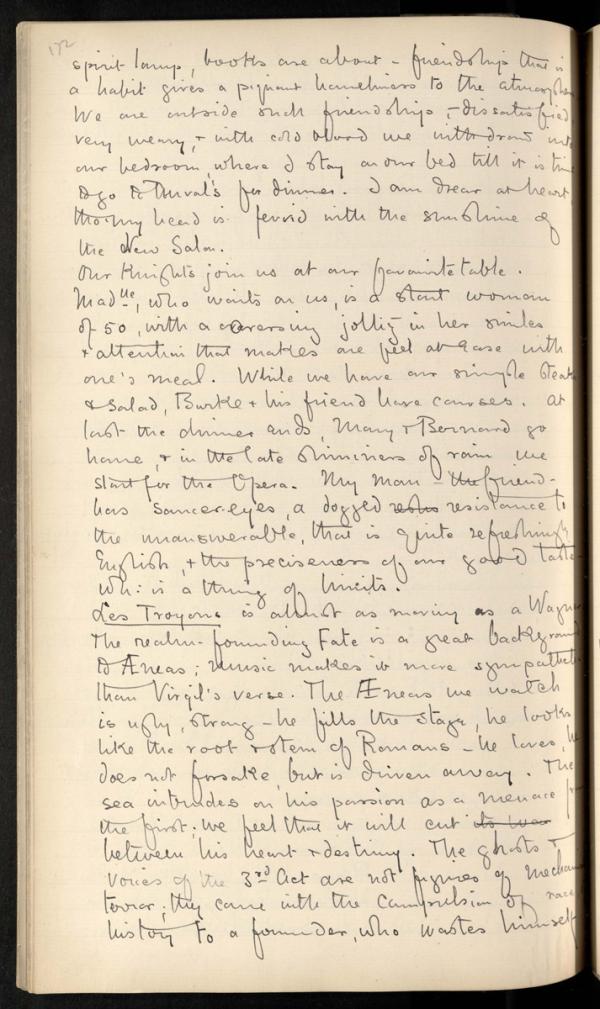 172
spirit lamp, books are about – friendship that is
a habit gives a piquant homeliness to the atmosphere
We are outside such friendship, – dissatisfied
very weary, + with cold blood we withdraw into
our bedroom, where I stay on our bed till it is time
to go to Duval's for dinner. I am drear at heart,
tho' my head is fervid with the sunshine of
the New Salon.
Our Knights join us at our favourite table.
Madlle, who waits on us, is a stout woman
of 50, with a caressing jollity in her smiles
+ attention that makes one feel at ease with
one's meal. While we have our simple steak
& salad, Burke + his friend have courses. At
last the dinner ends, Mary + Bernard go
home, + in the late shininess of rain we
start for the Opera. My man – the friend –
has saucer-eyes, a dogged resis resistance to
the unanswerable, that is quite refreshingly
English, + the preciseness of our good taste
wh: is a thing of limits.
Les Troyens is almost as moving as a Wagner
The realm-founding Fate is a great background
to Æneas; music makes it more sympathetic
than Virgil's verse. The Æneas we watch
is ugly, strong – he fills the stage, he looks
like the root + stem of Romans – he loves, he
does not forsake, but is driven away. The
sea intrudes on his passion as a menace from
the first; we feel that it will cut its way
between his heart + destiny. The ghosts +
voices of the 3rd Act are not figures of mechanic
terror; they come with the compulsion of race
history to a founder, who wastes himself